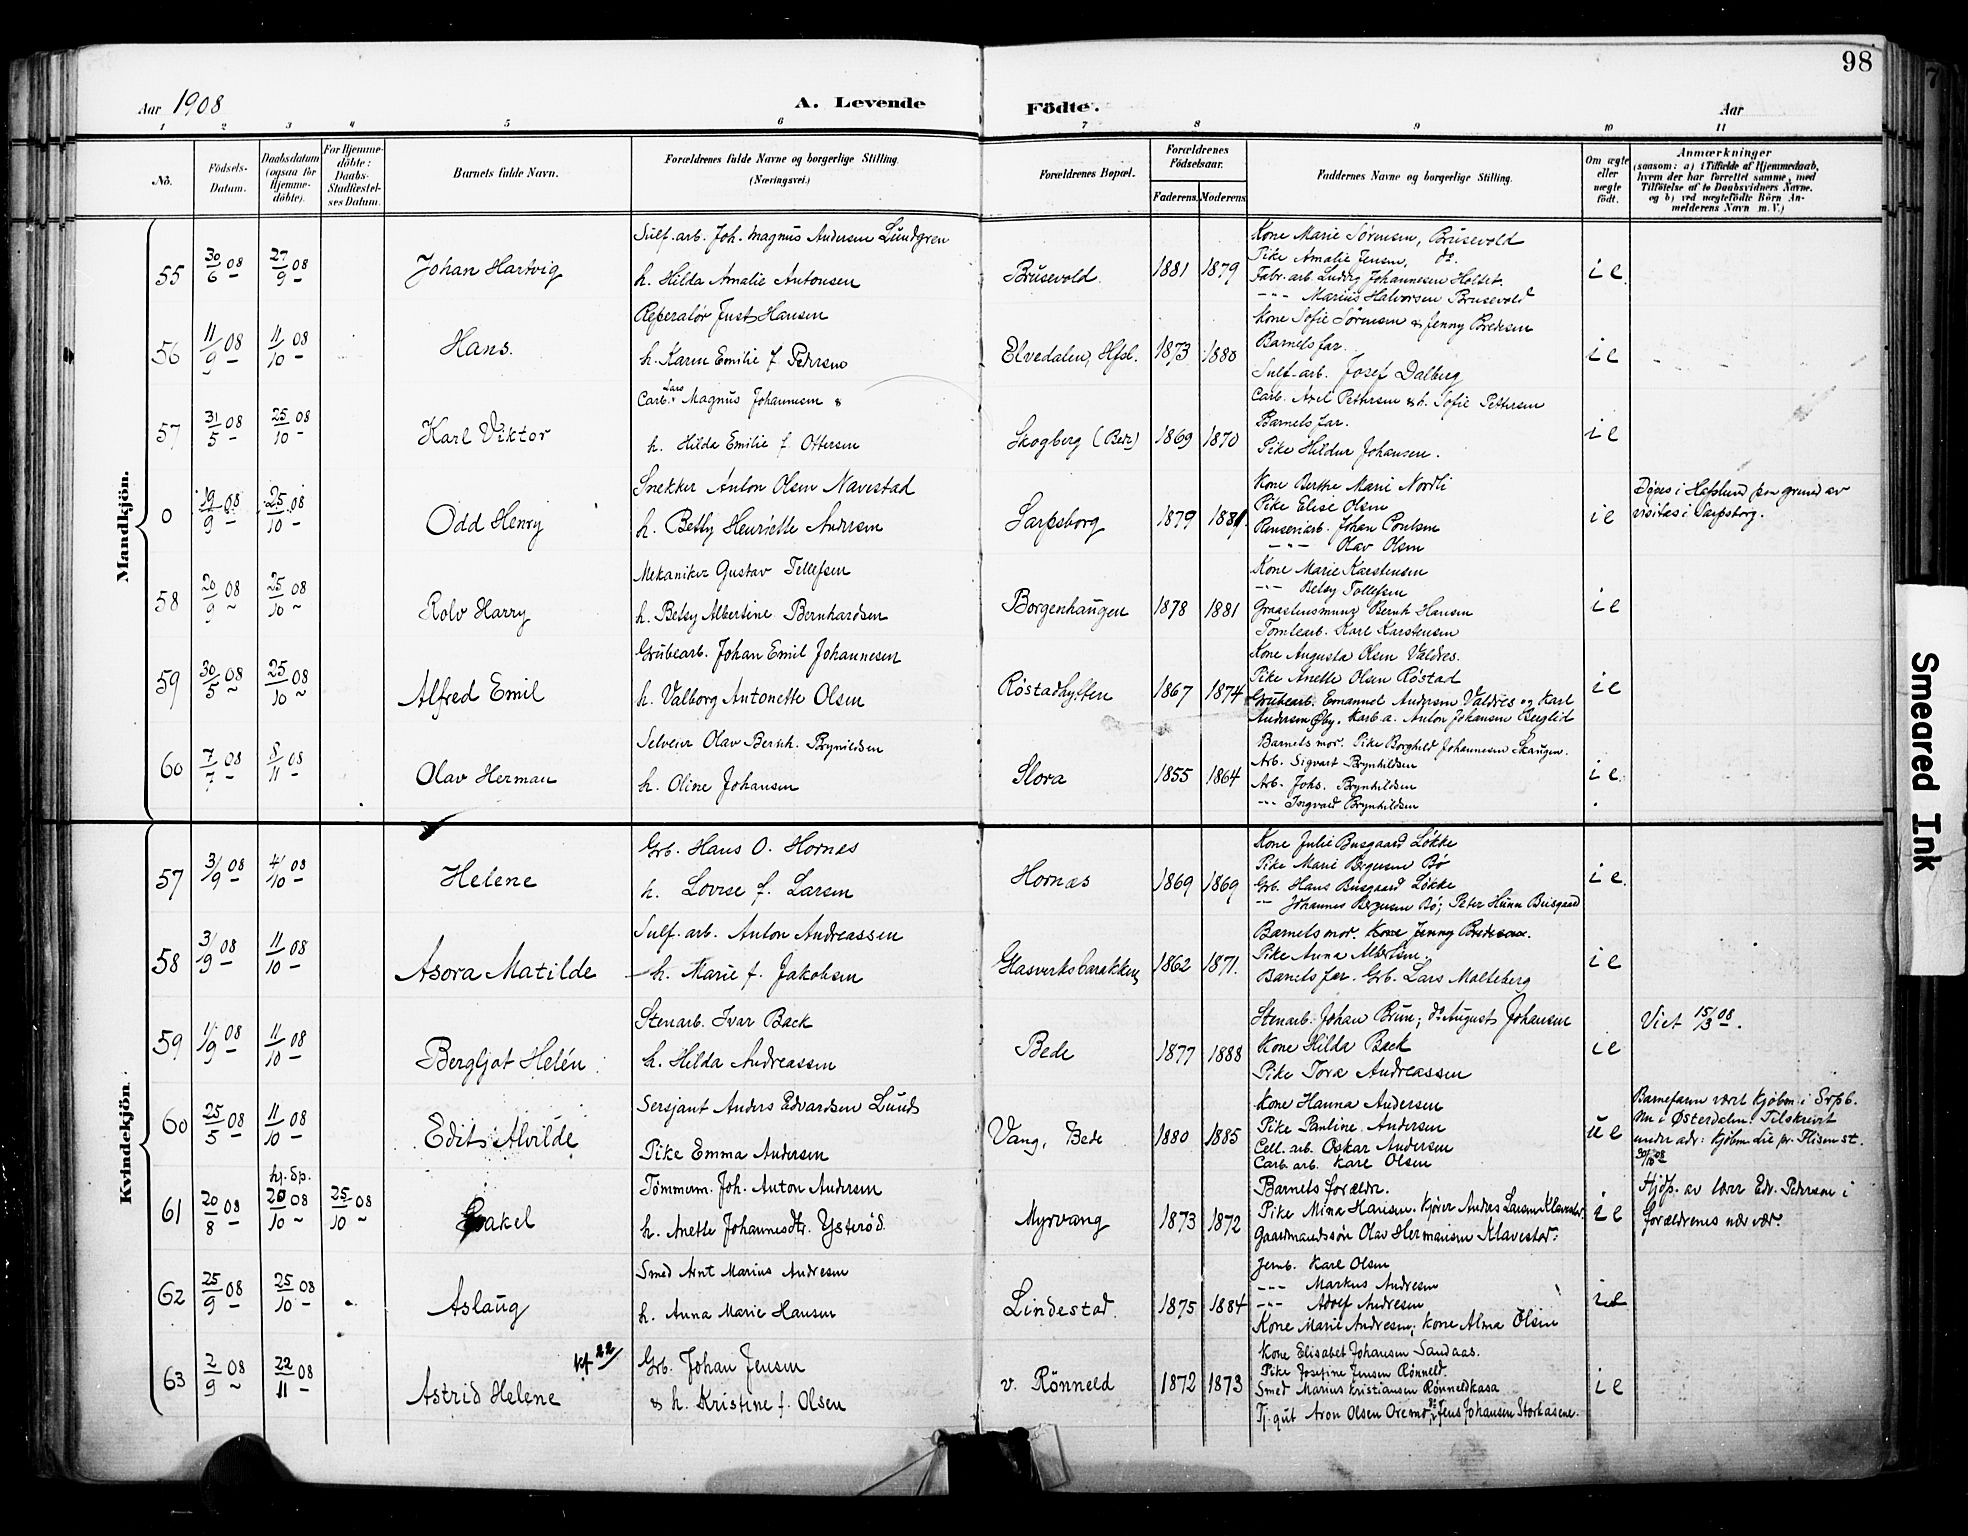 98
Aar 1908
A. Levende
Födte.
Aar
1 2 3 4 5 6 7 8 9 10 11
No.
Födsels-Datum.
Daabsdatum (ogsaa for Hjemme-döbte).
For Hjemme-döbte: Daabs-Stadfæstel-ses Datum.
Barnets fulde Navn.
Forældrenes fulde Navne og borgerlige Stilling. (Næringsvei.)
Forældrenes Bopæl.
Forældrenes Födselsaar.
Faderens. Moderens.
Faddernes Navne og borgerlige Stilling.
Om ægte eller uægte födt.
Anmærkninger
(saasom: a) i Tilfælde af Hjemmedaab,
hvem der har forrettet samme, med
Tilföielse af to Daabsvidners Navne,
og b) ved uægtefödte Börn An-
melderens Navn m. V.)
Mandkjön.
55 30/6 08 27/9 08 Johan Hartvig
Sulf.arb. Joh. Magnus Andersen Lundgren
h. Hilda Amalie Antonsen
Brusevold 1881 1879
Kone Marie Sørensen, Brusevold
Pike Amalie Jensen, do.
Fabr.arb. Ludvig Johannesen Holset.
--- Marius Halvorsen Brusevold
i e
56 11/9 08 11/10 08 Hans.
Reperatør Just Hansen
h. Karen Emilie f. Petersen
Elvedalen, Hfsl. 1873 1880
Kone Sofie Sørensen & Jenny Bredesen
Barnets far.
Sulf-arb. Josef Dalberg
i e
57 31/5 08 25/10 08 Karl Viktor
Carb. Lars Magnus Johannesen &
h. Hilda Emilie f. Ottersen
Skogberg (Bede) 1869 1870
Carb. Axel Pettersen & h. Sofie Pettersen
Barnets far.
Pike Hildur Johansen.
i e
0 19/9 08 25/10 08 Odd Henry
Snekker Anton Olsen Navestad
h. Betty Henriette Andersen
Sarpsborg 1879 1881
Kone Berthe Marie Nordli
Pike Elise Olsen
Renseriarb. Johan Poulsen
--- Olav Olsen
i e
Døpes i Hafslund paa grund av
visitas i Sarpsborg.
58 20/9 08 25/10 08 Rolv Harry
Mekaniker Gustav Tellefsen
h. Betsy Albertine Bernhardsen
Borgenhaugen 1878 1881
Kone Marie Karstensen
--- Betsy Tollefsen
Graastensmurer Bernh. Hansen
Tomtearb. Karl Karstensen
i e
59 30/5 08 25/10 08 Alfred Emil
Grubearb. Johan Emil Johannesen
h. Valborg Antonette Olsen
Røstadhytten 1867 1874
Kone Augusta Olsen Valdres.
Pike Anette Olsen Røstad
Grubearb. Emanuel Andersen Valdres og Karl
Andersen Øby. Karb a. Anton Johansen Berglid
i e
60 7/7 08 8/11 08 Olav Herman
Selveier Olav Bernh. Brynildsen
h. Oline Johansen
Slora 1855 1864
Barnets mor. Pike Borghild Johannesen Skaugen.
Arb. Sigvart Brynhildsen
Arb. Johs. Brynhildsen
--- Ingvald Brynhildsen
i e.
Kvindekjön.
57 3/9 08 4/10 08 Helene
Grb. Hans O. Hornes
h. Lovise f. Larsen
Hornæs 1869 1869
Kone Julie Busgaard Løkke
Pike Marie Bergersen Bø
Grb. Hans Busgaard Løkke
-- Johannes Bergersen Bø; Peter Hunn Busgaard
i e.
58 3/9 08 11/10 08 Asora Matilde
Sulf. arb. Anton Andreassen
h. Marie f. Jakobsen
Glasverksbarakken 1862 1871.
Barnets mor. Kone Jenny Bredesen.
Pike Anna Albertsen.
Barnets far. Grb. Lars Molteberg
i e
59 1/9 08 11/10 08 Bergljot Helén
Stenarb. Ivar Back
h. Hilda Andreassen
Bede 1877 1888
Stenarb. Johan Brun; do August Johansen
Kone Hilda Back
Pike Tora Andreassen
i e
Viet 15/3 08.
60 25/5 08 11/10 08 Edits Alvilde
Sersjant Anders Edvardsen Lunds
Pike Emma Andersen
Vang, Bede 1880 1885
Kone Hanna Andersen
Pike Pauline Andersen
Cell. arb. Oskar Andersen
Carb. arb. Karl Olsen
u e
Barnefaren vært kjøbm. i Srpb.
nu i Østerdalen. Tilskrevet
under adr: kjøbm Lie pr. Flisen st.
30/10 08
61 20/8 08 hj. dp. 20/10 08 25/10 08 Rakel
Tømmerm. Joh. Anton Andersen
h. Anette Johannesdtr. Ysterød.
Myrvang 1873 1872
Barnets forældr.
Pike Mina Hansen. kjører Anders Larsen Klavestad.
Gaardmandssøn Olav Hermansen Klavestad.
i e
Hjdp. av lærer Edv. Pedersen i
forældrenes nærvær.
62 25/9 08 25/10 08 Aslaug
Smed Arnt Marius Andresen
h. Anna Marie Hansen
Lindestad. 1875 1884
Jernb. Karl Olsen
--- Markus Andresen
--- Adolf Andresen
Kone Marie Andresen, Kone Alma Olsen
i e
63 2/9 08 22/11 08 Astrid Helene
Grb. Johan Jensen
& h. Kristine f. Olsen
v. Rönneld 1872 1873
Kone Elisabet Johansen Sandaas.
Pike Josefine Jensen Rønneld.
Smed Marius Kristiansen Rønneldkasa
Tj.gut Aron Olsen Oremo, do Jens Johansen Storkasene.
i e
Smeared Ink